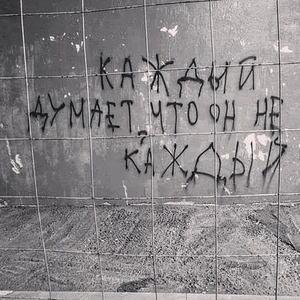 КАЖДЫЙ
ДУМАЕТ, ЧТО ОН НЕ
КАЖДЫЙ